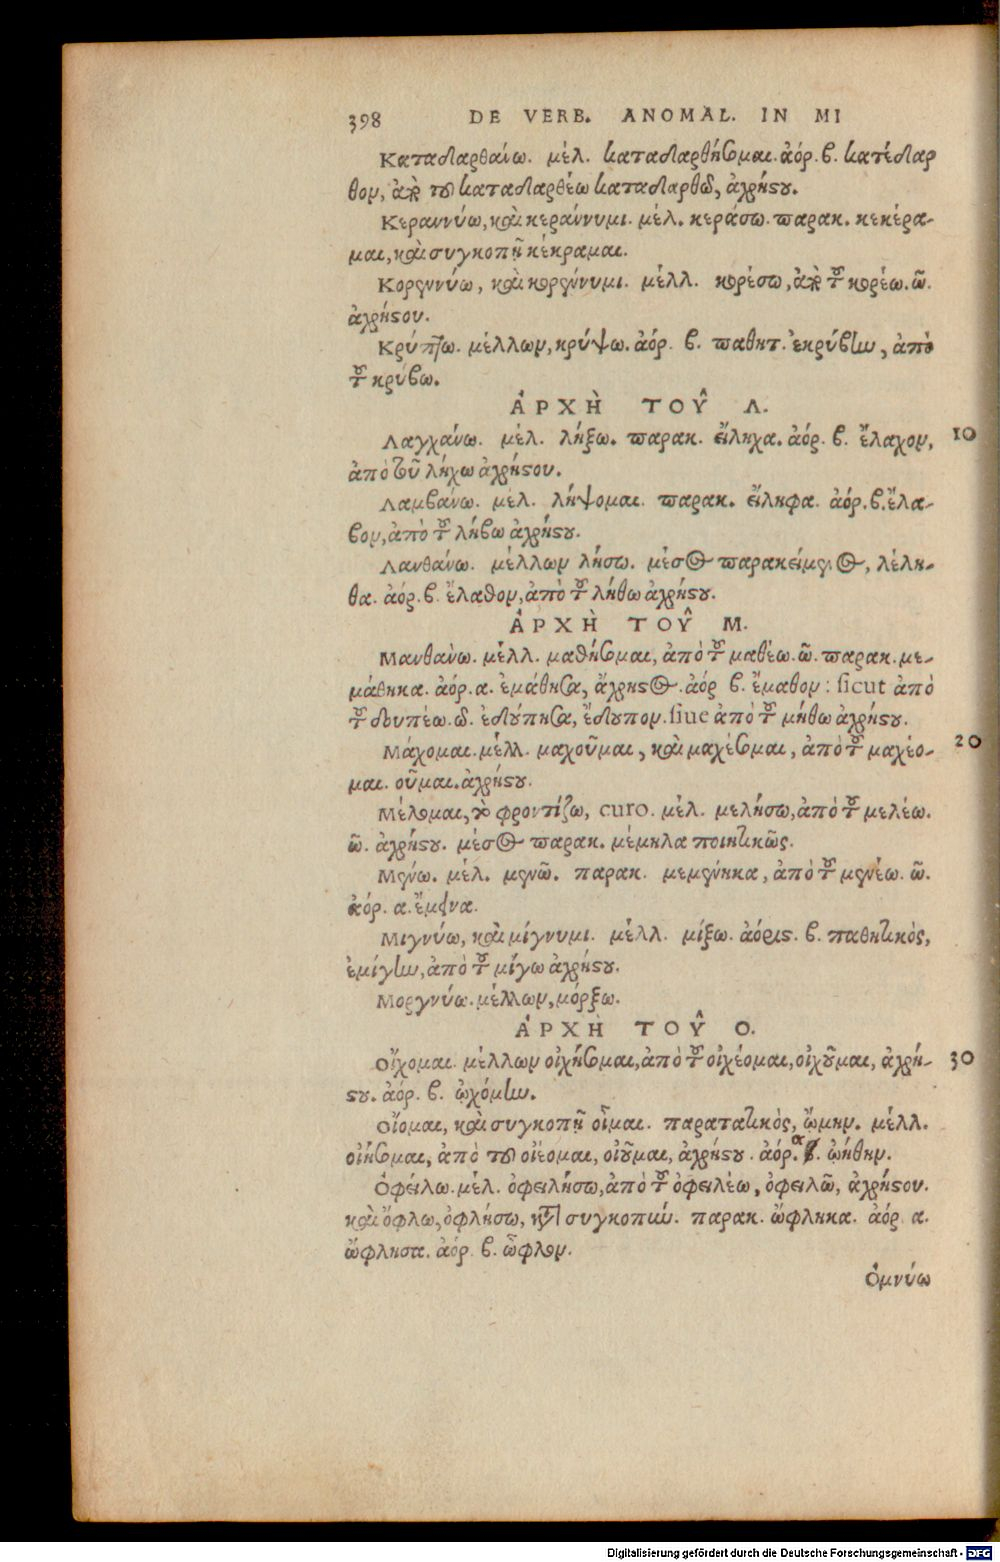 398 DE VERB. ANOMAL. IN MI
Καταδαρθαίνω. μέλ. καταδαρθήσομαι. ἀόρ. β. κατέδαρ
θον, ἀπὸ τοῦ καταδαρθέω καταδαρθῶ, ἀχρήστου.
Κεραννύω, καὶ κεράννυμι. μέλ. κεράσω. παρακ. κεκέρα-
μαι, καὶ συγκοπῇ κέκραμαι.
Κορεννύω, καὶ κορέννυμι. μέλλ. κορέσω, ἀπὸ τοῦ κορέω. ῶ.
ἀχρήστου.
Κρύπτω. μέλλων, κρύψω. ἀόρ. β. παθητ. ἐκρύβην, ἀπὸ
τοῦ κρύβω.
ἈΡΧῊ ΤΟΥ͂ Λ.
Λαγχάνω. μέλ. λήξω. παρακ. εἴληχα. ἀόρ. β. ἔλαχον, 10
ἀπὸ τοῦ λήχω ἀχρήστου.
Λαμβάνω. μέλ. λήψομαι. παρακ. εἴληφα. ἀόρ. β. ἔλα-
βον, ἀπὸ τοῦ λήβω ἀχρήστου.
Λανθάνω. μέλλων λήσω. μέσος παρακείμενος, λέλη-
θα. ἀόρ. β. ἔλαθον, ἀπὸ τοῦ λήθω ἀχρήστου.
ἈΡΧῊ ΤΟΥ͂ Μ.
Μανθάνω. μέλλ. μαθήσομαι, ἀπὸ τοῦ μαθέω. ῶ. παρακ. με-
μάθηκα. ἀόρ. α. ἐμάθησα, ἄχρηστος. ἀόρ β. ἔμαθον: sicut ἀπὸ
τοῦ δουπέω. ῶ. ἐδούπησα, ἔδουπον. siue ἀπὸ τοῦ μήθω ἀχρήστου.
Μάχομαι. μέλλ. μαχοῦμαι, καὶ μαχέσομαι, ἀπὸ τοῦ μαχέο- 20
μαι. οῦμαι. ἀχρήστου.
Μέλομαι, τὸ φροντίζω, curo. μέλ. μελήσω, ἀπὸ τοῦ μελέω.
ῶ. ἀχρήστου. μέσος παρακ. μέμηλα ποιητικῶς.
Μένω. μέλ. μενῶ. παρακ. μεμένηκα, ἀπὸ τοῦ μενέω. ῶ.
ἀόρ. α. ἔμεινα.
Μιγνύω, καὶ μίγνυμι. μέλλ. μίξω. ἀόριστ. β. παθητικὸς,
ἐμίγην, ἀπὸ τοῦ μίγω ἀχρήστου.
Μοργνύω. μέλλων, μόρξω.
ἈΡΧῊ ΤΟΥ͂ Ο.
Οἴχομαι. μέλλων οἰχήσομαι, ἀπὸ τοῦ οἰχέομαι, οἰχοῦμαι, ἀχρή- 30
στου. ἀόρ. β. ᾠχόμην.
Οἴομαι, καὶ συγκοπῇ οἶμαι. παρατατικὸς, ᾤμην. μέλλ.
οἰήσομαι, ἀπὸ τοῦ οἰέομαι, οἰοῦμαι, ἀχρήστου. ἀόρ. α β. ᾠήθην.
Ὀφείλω. μέλ. ὀφειλήσω, ἀπὸ τοῦ ὀφειλέω, ὀφειλῶ, ἀχρήστου.
καὶ ὄφλω, ὀφλήσω, κατὰ συγκοπήν. παρακ. ὤφληκα. ἀόρ. α.
ὤφλησα. ἀόρ. β. ὦφλον.
Ὀμνύω
Digitalisierung gefördert durch die Deutsche Forschungsgemeinschaft - DFG